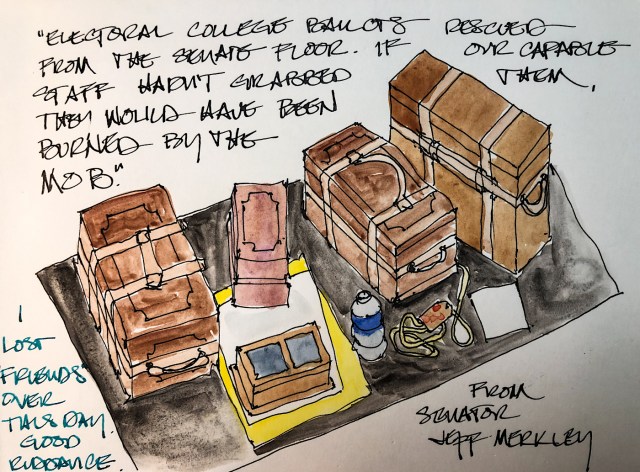 "ELECTORAL COLLEGE BALLOTS RESCUED
FROM THE SENATE FLOOR. IF OUR CAPABLE
STAFF HADN'T GRABBED THEM,
THEY WOULD HAVE BEEN
BURNED BY THE
MOB."
I
LOST
FRIENDS
OVER
THIS DAY.
GOOD
RIDDANCE.
FROM
SENATOR
JEFF MERKLEY